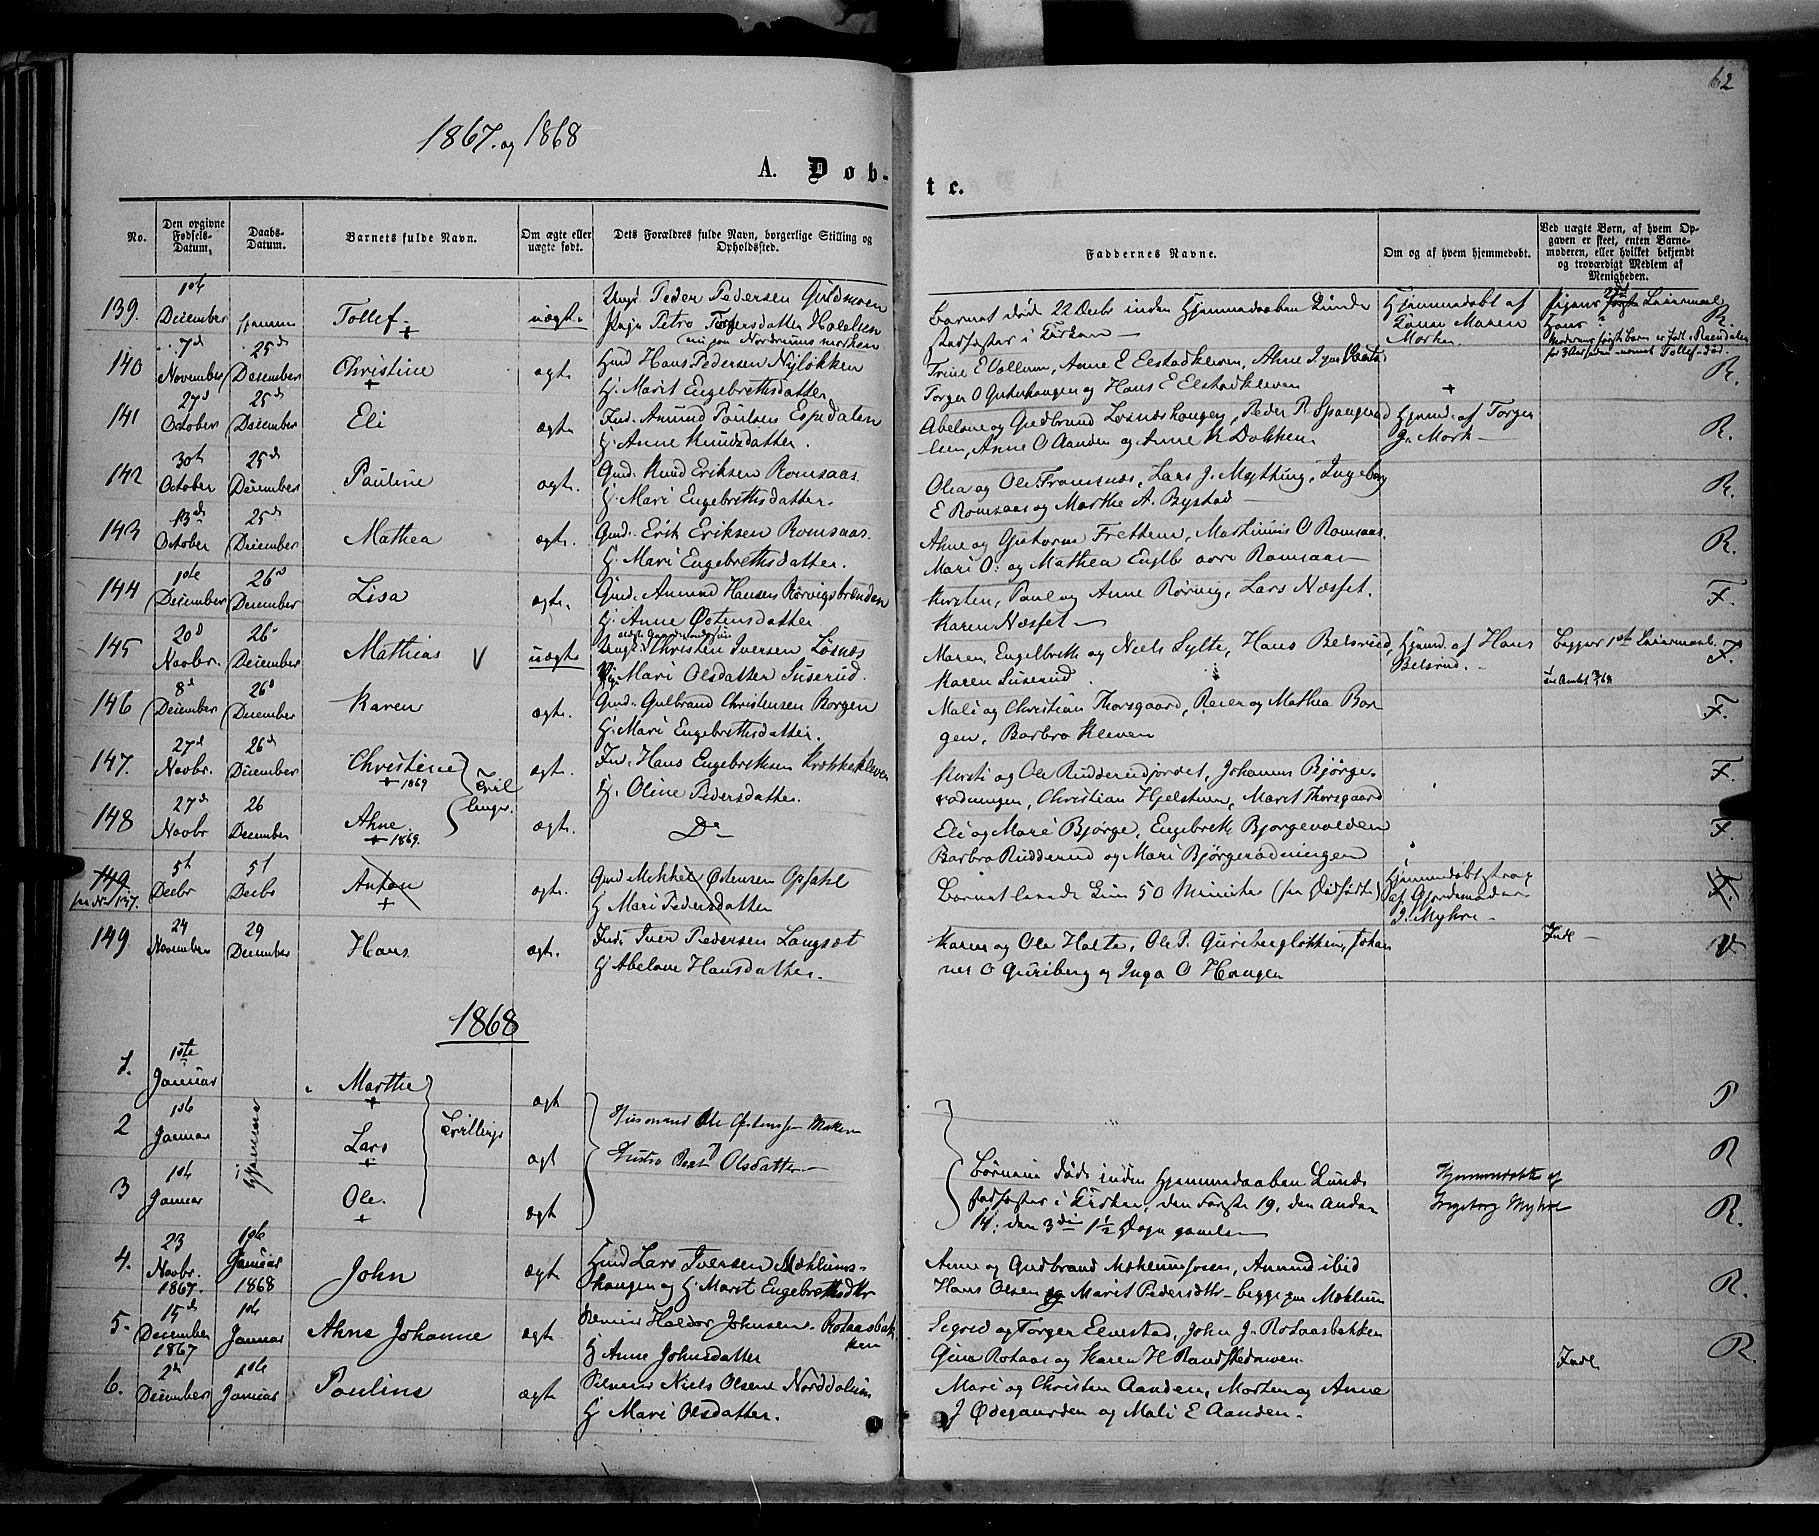 62
1867. og 1868
A. Døb-
te.
No.
Den opgivne Fødsels-Datum.
Daabs-Datum.
Barnets fulde Navn.
Om ægte eller uægte født.
Dets Forældres fulde Navn, borgerlige Stilling og Opholdssted.
Faddernes Navne.
Om og af hvem hjemmedøbt.
Ved uægte Børn, af hvem Opgaven er skeet, enten Barnemoderen, eller hvilket bekjendt og troværdigt Medlem af Menigheden.
139. 1ste December hjemme Tollef + uægte.
Ungk. Peder Pedersen
Pige Petro
Barnet død 22 Decbr inden Hjemmedaaben kunde
stadfæstes i Kirken
Hjemmedøbt af
Maren
Morken.
R.
140 7d November 25d December Christine + ægte
Gmd Hans Pedersen Nyløkken
H. Marit Engebrethsdatter.
Trine E Vollum, Anne E Elstadkleven, Ahne I
Torger O og Hans E Elstadkleven
+
R.
141 27d October 25d December Eli ægte
Ind. Amund Paulsen Espedalen
H. Anne Knudsdatter.
Abelone og Gudbrand Losnæshaugen, Peder P.
lien, Anne O Aanden og Anne K Dokken
Hjemd. af Torger
G. Mork
R.
142 30te October 25d December Pauline ægte.
Gmd. Knud Eriksen Romsaas
H. Mari Engebrethsdatter.
Olea og Ole Tromsnæs, Lars J. Mytting, Ingeborg
E Romsaas og Marthe A. Bystad
R.
143 13d October 25d December Mathea ægte.
Gmd. Erik Eriksen Romsaas.
H. Mari Engebrethsdatter.
Ahne og Guttorm Frettem, Mathinus O Romsaas.
Mari O. og Mathea Romsaas
R.
144 1ste December 26d December Lisa ægte.
Gmd. Amund Hansen Rørvigsbrænden
H. Anne Østensdatter
Kersten, Paul og Anne Rørvig, Lars Næsset.
Karen Næsset
F.
145 20d Novbr. 26d December Mathias V uægte
Ungk. Christen Iversen Løsnæs
Pig. Mari Olsdatter Suserud.
Maren, Engelbreth og Niels Sylte, Hans Belsrud,
Karen Suserud.
Hjemd. af Hans
Belsrud.
Begges 1ste Leiermaal.
F.
146 8d December 26d December Karen ægte.
Gmd. Gulbrand Christensen Borgen
H. Mari Engebrethsdatter.
Mali og Christian Thorsgaard, Reier og Mathea Bor
gen, Barbro Kleven
F.
147. 27d Novbr. 26d December Christine + 1869 Tvillinger ægte.
Ind. Hans Engebretsen Krokkekleven
H. Oline Pedersdatter.
Kersti og Ole Rudderudjordet, Johannes Bjørge-
rødningen, Christian Hjelstuen, Marit Thorsgaard
F.
148 27d Novbr 26 December Ahne + 1869. ægte.
Do
Eli og Mari Bjørge, Engebreth Bjørgevolden
Barbro Rudderud og Mari Bjørgerødningen
F.
149 5t Decbr 5t Decbr Anton + ægte.
Gmd Mikkel Østensen Opsahl
H Mari Pedersdatter
Barnet levede kun 50 Minuter
Hjemmedøbt strax
af Gjordemoder
J. Myhre
F.
149 24 November 29 December Hans ægte.
Ind. Iver Pedersen Langsæt
H. Abelone Hansdatter.
Karen og Ole Holte, Ole P. Guribergløkken, Johan
nes O Guriberg og Inga O Haugen
Indl
1868
1. 1ste Januar Marthe + ægte
2 1ste Januar hjemme Lars + Trillinge ægte
3 1ste Januar Ole. + ægte
Husmand Ole Østensen Moken
Hustro Olsdatter
Børnene døde inden Hjemmedaaben kunde
stadfæstes i Kirken, den første 19, den Anden
14, den 3die 1½ Døgn gamle
Hjemmedøbte af
Ingeborg Myhre
R
R.
4. 23 Novbr. 1867. 1ste Januar 1868 John ægte
Hmd Lars Iversen Mæklums-
haugen og H. Marit Engebrethsdtr
Anne og Gudbrand Mæklumsroen, Amund ibid
Hans Olsen og Marit Pedersdtr begge paa Mæklum
R.
5. 15d December 1867 1ste Januar Ahne Johanne ægte
Haldor Johnsen Rolaasbak
ken
H Anne Johnsdatter
Sigrid og Torger Elvestad, John J. Rolaasbakken
Gina Rolaas og Karen H Randstedmoen.
Indl
R.
6. 2den December 1ste Januar Pauline ægte
Niels Olsen Norddølum
H. Mari Olsdatter.
Mari og Christen Aanden, Morten og Anne
J Ødegaarden og Mali E Aanden.